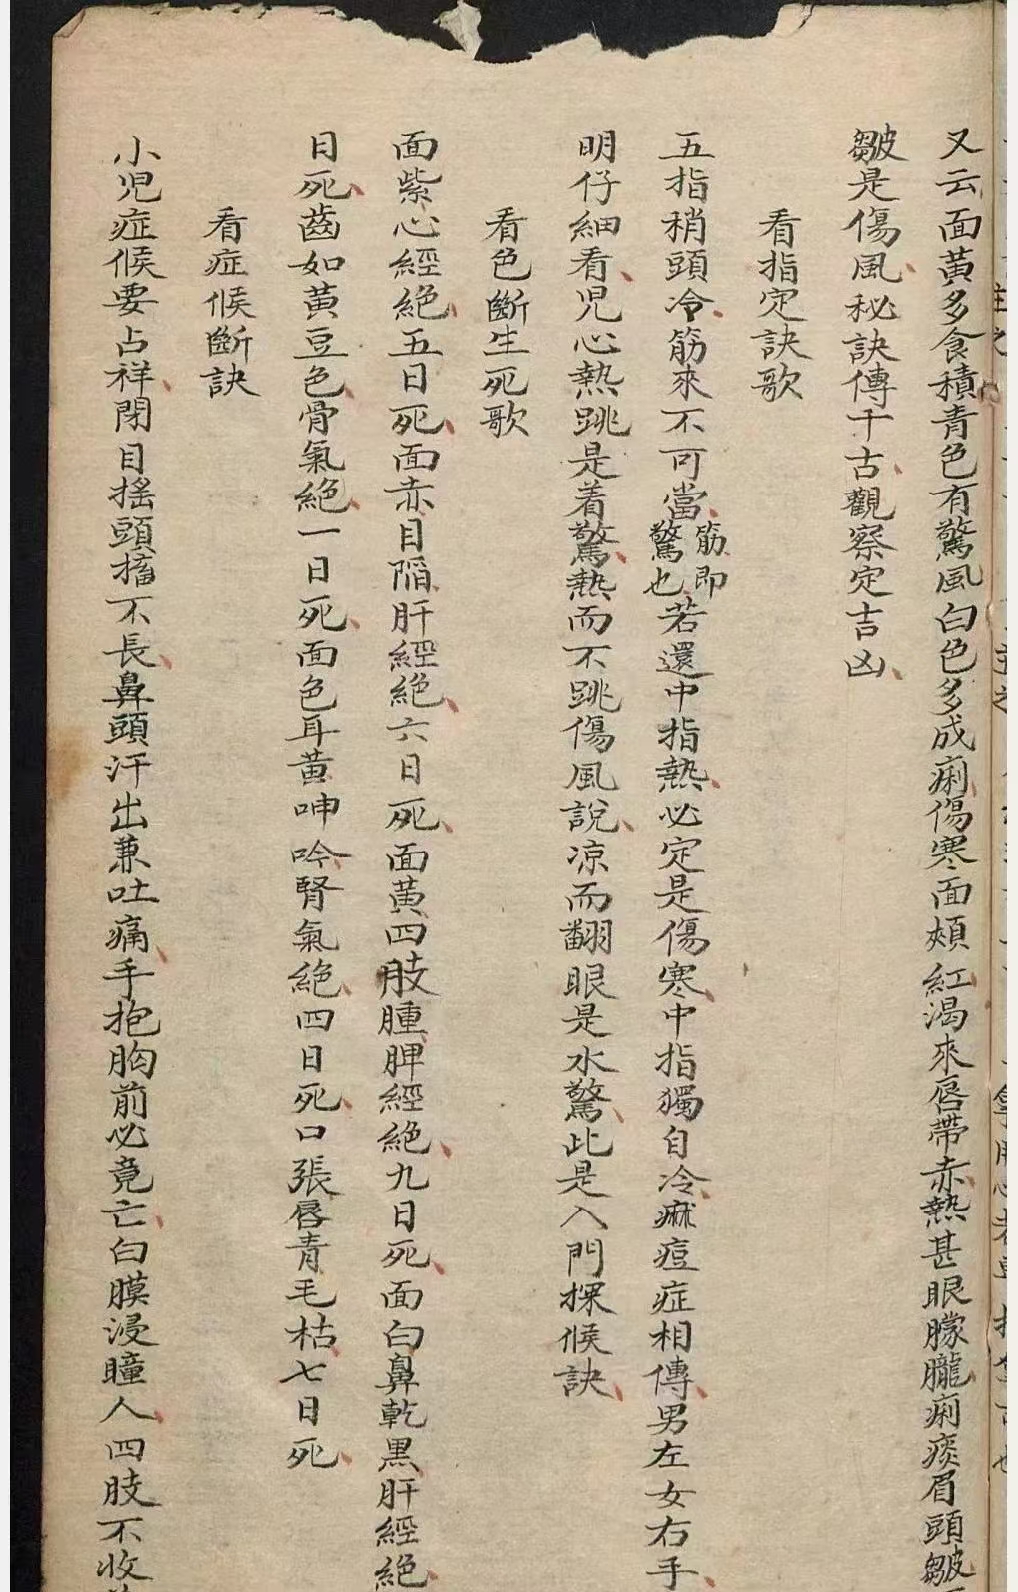 又云面黃多食積青色有驚風白色多成痢傷寒面頰紅渴來唇帶赤熱甚眼朦朧痢痰眉頭皺
皺是傷風秘訣傳千古觀察定吉凶
看指定訣歌
五指稍頭冷筋來不可當筋即驚也若還中指熱必定是傷寒中指獨自冷痲痘症相傳男左女右手
明仔細看児心熱跳是着驚熱而不跳傷風說凉而翻眼是水驚此是入門探候訣
看色斷生死歌
面紫心經絕五日死面赤目陷肝經絕六日死面黃四肢腫脾經絕九日死面白鼻乾黑肝經絕
日死齒如黃豆色骨氣絕一日死面色耳黃呻吟腎氣絕四日死口張唇青毛枯七日死
看症候斷訣
小児症候要占祥閉目搖頭搐不長鼻頭汗出兼吐痛手抱胸前必竟亡白膜浸瞳人四肢不收